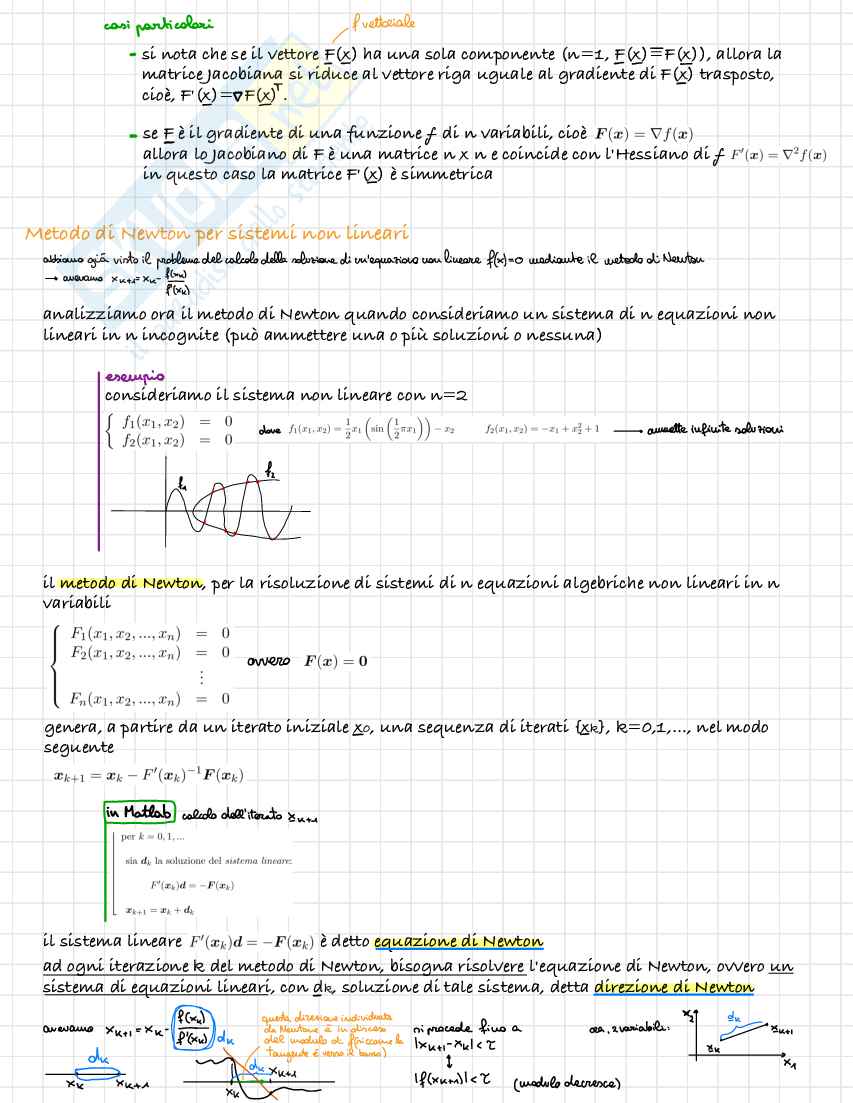 casi particolari
f vettoriale
- si nota che se il vettore F(x) ha una sola componente (n=1, F(x)≡F(x)), allora la
matrice Jacobiana si riduce al vettore riga uguale al gradiente di F(x) trasposto,
cioè, F'(x)=∇F(x)ᵀ.
- se F è il gradiente di una funzione f di n variabili, cioè F(x) = ∇f(x)
allora lo Jacobiano di F è una matrice n x n e coincide con l'Hessiano di f F'(x) = ∇²f(x)
in questo caso la matrice F'(x) è simmetrica
Metodo di Newton per sistemi non lineari
abbiamo già visto il problema del calcolo della soluzione di un'equazione non lineare f(x)=0 mediante il metodo di Newton
→ avevamo xₖ₊₁=xₖ- f(xₖ)/f'(xₖ)
analizziamo ora il metodo di Newton quando consideriamo un sistema di n equazioni non
lineari in n incognite (può ammettere una o più soluzioni o nessuna)
esempio
consideriamo il sistema non lineare con n=2
{ f₁(x₁, x₂) = 0
f₂(x₁, x₂) = 0
dove f₁(x₁, x₂) = 1/2 x₁ (sin(1/2 πx₁)) − x₂ f₂(x₁, x₂) = −x₁ + x₂² + 1 → ammette infinite soluzioni
f₁ f₂
il metodo di Newton, per la risoluzione di sistemi di n equazioni algebriche non lineari in n
variabili
{ F₁(x₁, x₂, ..., xₙ) = 0
F₂(x₁, x₂, ..., xₙ) = 0
⋮
Fₙ(x₁, x₂, ..., xₙ) = 0
ovvero F(x) = 0
genera, a partire da un iterato iniziale x₀, una sequenza di iterati {xₖ}, k=0,1,..., nel modo
seguente
xₖ₊₁ = xₖ − F'(xₖ)⁻¹F(xₖ)
in Matlab calcolo dell'iterato xₖ₊₁
per k = 0, 1, ...
sia dₖ la soluzione del sistema lineare:
F'(xₖ)d = −F(xₖ)
xₖ₊₁ = xₖ + dₖ
il sistema lineare F'(xₖ)d = −F(xₖ) è detto equazione di Newton
ad ogni iterazione k del metodo di Newton, bisogna risolvere l'equazione di Newton, ovvero un
sistema di equazioni lineari, con dₖ, soluzione di tale sistema, detta direzione di Newton
avevamo xₖ₊₁=xₖ- f(xₖ)/f'(xₖ) dₖ
dₖ
xₖ xₖ₊₁
questa direzione individuata
da Newton è in discesa
del modulo di f (siccome la
tangente è verso il basso)
dₖ xₖ₊₁
xₖ
si procede fino a
|xₖ₊₁-xₖ|<τ
↕
|f(xₖ₊₁)|<τ (modulo decresce)
ora, 2 variabili:
x₂ dₖ
xₖ xₖ₊₁
x₁